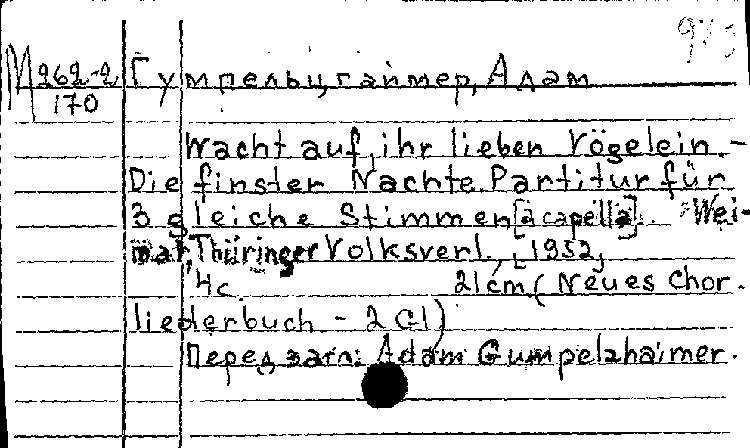 М 262-2 Гумпельцгаймер, Адам
170
Wacht auf, ihr lieben Vögelein. -
Die finster Nachte. Partitur für
3 gleiche Stimmen [a capella]. Wei-
mar, Thüringer Volksverl., [1952,
4 с. 21 cm. (Neues Chor.
liederbuch - 2 Gl)
Перед загл: Adam Gumpelzhaimer.